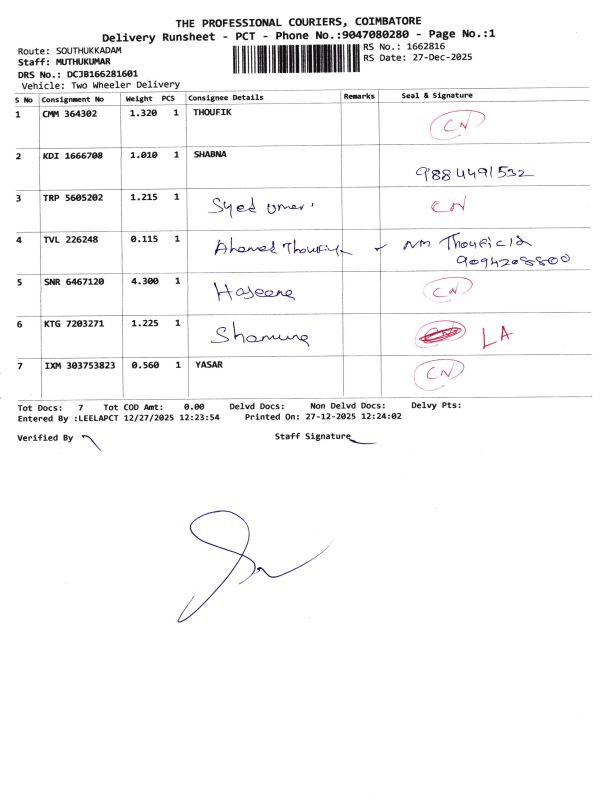 THE PROFESSIONAL COURIERS, COIMBATORE
Delivery Runsheet - PCT - Phone No.:9047080280 - Page No.:1
Route: SOUTHUKKADAM
Staff: MUTHUKUMAR
DRS No.: DCJB166281601
Vehicle: Two Wheeler Delivery
RS No.: 1662816
RS Date: 27-Dec-2025
S No Consignment No Weight PCS Consignee Details Remarks Seal & Signature
1 CMM 364302 1.320 1 THOUFIK CN
2 KDI 1666708 1.010 1 SHABNA 9884491532
3 TRP 5605202 1.215 1 Syed Umer CN
4 TVL 226248 0.115 1 Ahamed Thoufiyk
9094208800
5 SNR 6467120 4.300 1 Haseena CN
6 KTG 7203271 1.225 1 LA
7 IXM 303753823 0.560 1 YASAR CN
Tot Docs: 7 Tot COD Amt: 0.00 Delvd Docs: Non Delvd Docs: Delvy Pts:
Entered By :LEELAPCT 12/27/2025 12:23:54 Printed On: 27-12-2025 12:24:02
Verified By Staff Signature